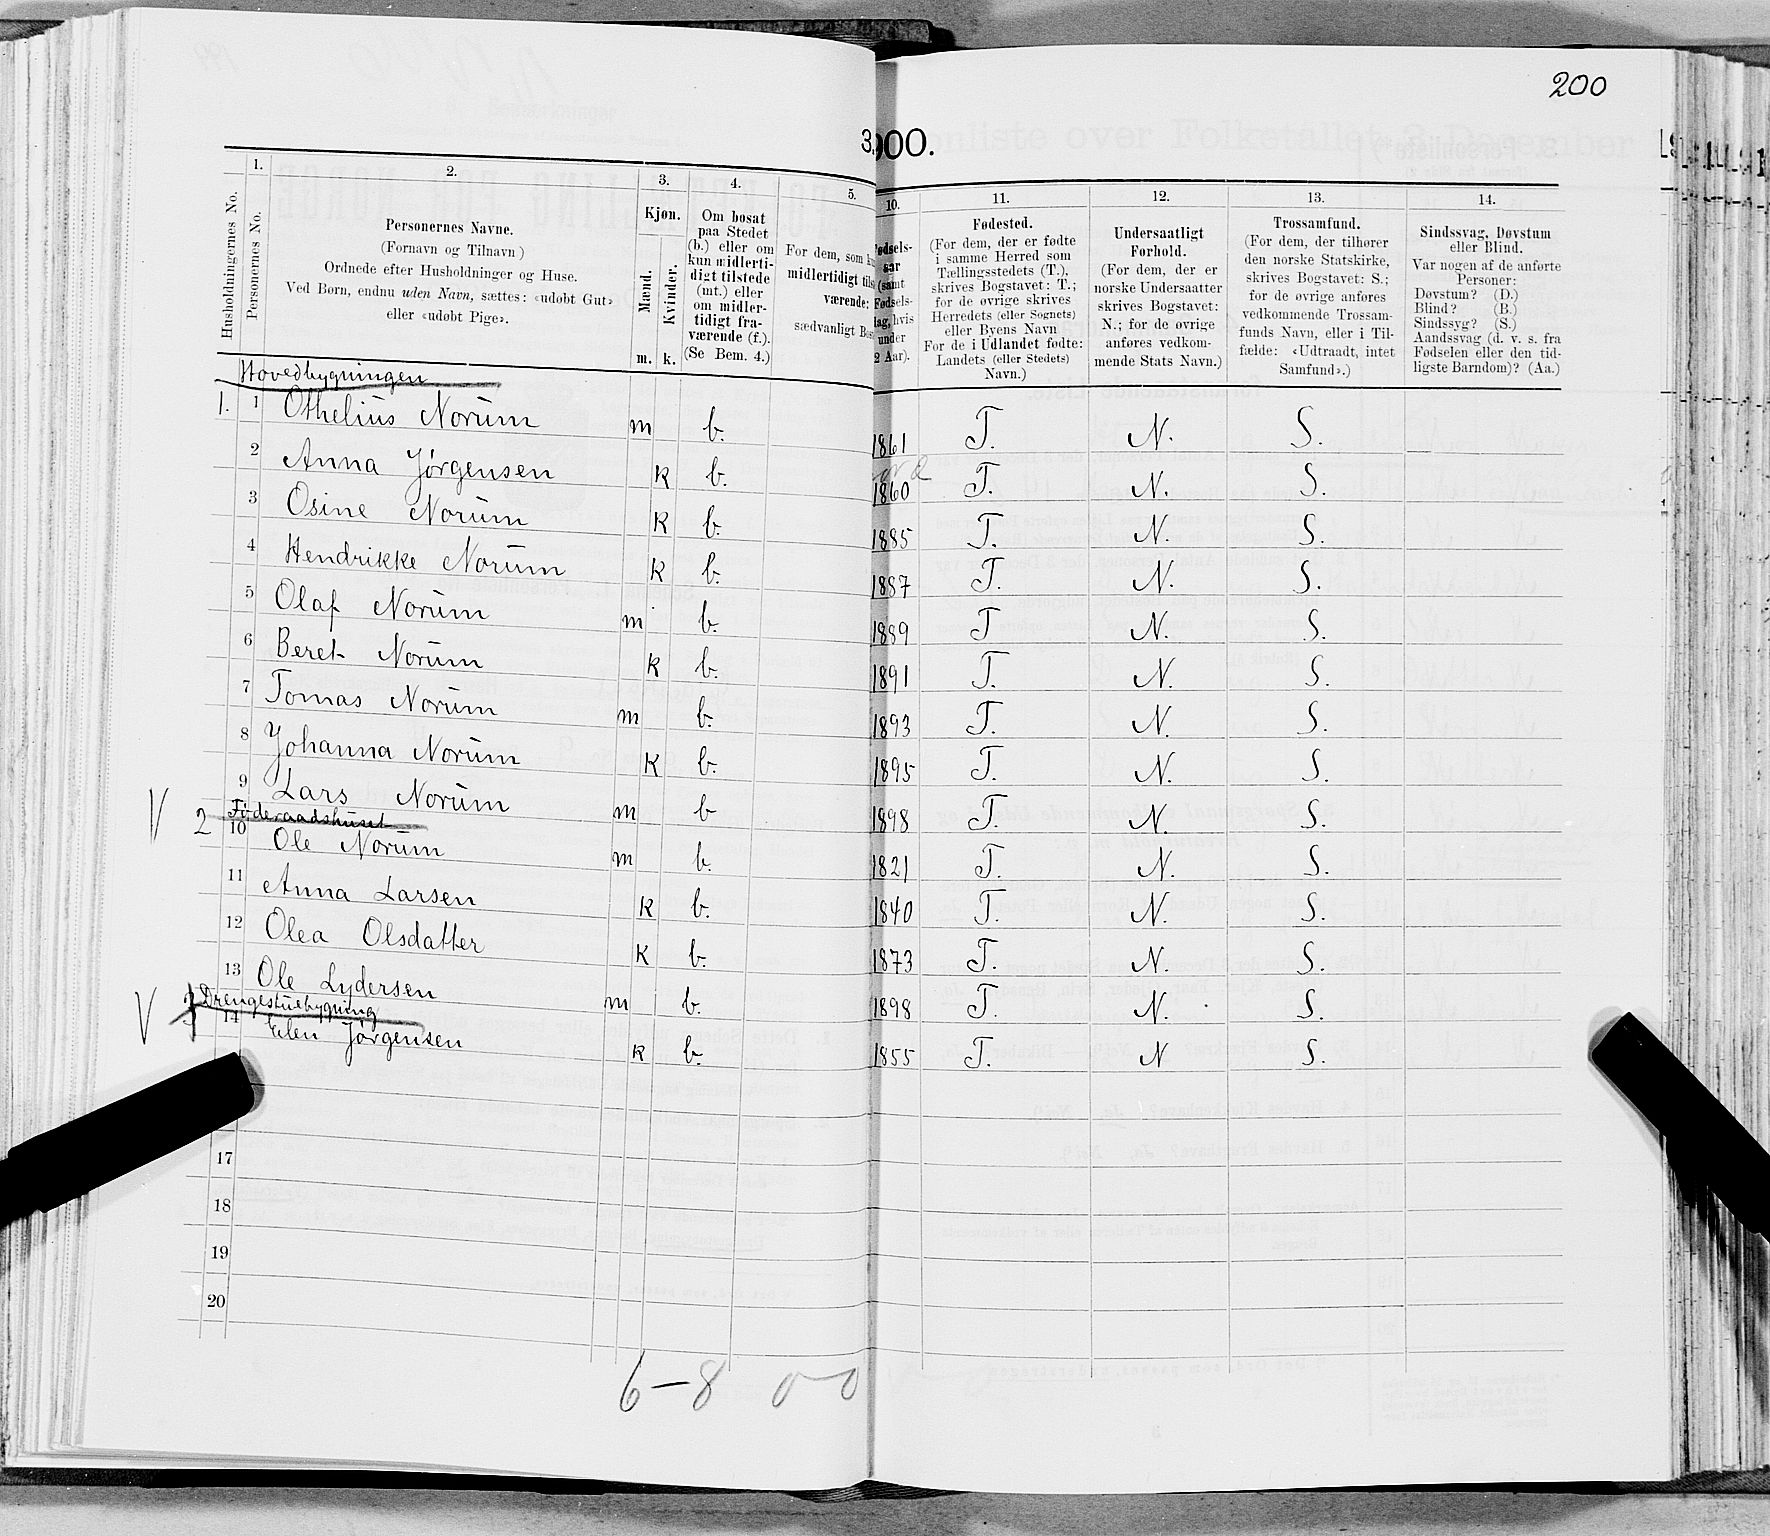 200
3.
900.
Husholdningernes No.
1.
Personernes No.
2.
Personernes Navne.
(Fornavn og Tilnavn)
Ordnede efter Husholdninger og Huse.
Ved Børn, endnu uden Navn, sættes: «udøbt Gut»
eller «udøbt Pige».
3.
Kjøn.
Mænd.
Kvinder.
m. k.
4.
Om bosat
paa Stedet
(b.) eller om
kun midlerti-
digt tilstede
(mt.) eller
om midler-
tidigt fra-
værende (f.).
(Se Bem. 4.)
5.
For dem, som
midlertidigt
værende:
sædvanligt
10.
ødsels-
aar
(samt
Fødsels-
dag, hvis
under
2 Aar).
11.
Fødested.
(For dem, der er fødte
i samme Herred som
Tællingsstedets (T.),
skrives Bogstavet: T.;
for de øvrige skrives
Herredets (eller Sognets)
eller Byens Navn
For de i Udlandet fødte:
Landets (eller Stedets)
Navn.)
12.
Undersaatligt
Forhold.
(For dem, der er
norske Undersaatter
skrives Bogstavet:
N.; for de øvrige
anføres vedkom-
mende Stats Navn.)
13.
Trossamfund.
(For dem, der tilhører
den norske Statskirke,
skrives Bogstavet: S.;
for de øvrige anføres
vedkommende Trossam-
funds Navn, eller i Til-
fælde: «Udtraadt, intet
Samfund».)
14.
Sindssvag, Døvstum
eller Blind.
Var nogen af de anførte
Personer:
Døvstum? (D.)
Blind? (B.)
Sindssyg? (S.)
Aandssvag (d. v. s. fra
Fødselen eller den tid-
ligste Barndom)? (Aa.)
Hovedbygningen
1. 1 Othelius Norum m b. 1861 T. N. S.
2 Anna Jørgensen k b. 1860 T. N. S.
3 Osine Norum k b. 1885 T. N. S.
4 Hendrikke Norum k b. 1887 T. N. S.
5 Olaf Norum m b. 1889 T N. S.
6 Beret Norum k b. 1891 T. N. S.
7 Tomas Norum m b. 1893 T. N. S.
8 Johanna Norum k b. 1895 T. N. S.
9 Lars Norum m b 1898 T. N. S.
Føderaadshuset
V 2 10 Ole Norum m b. 1821 T. N. S.
11 Anna Larsen k b. 1840 T. N. S.
12 Olea Olsdatter k b. 1873 T. N. S.
13 Ole Lydersen m b. 1898 T. N. S.
Drengestuebygning
V 3 14 Elen Jørgensen k b. 1855 T. N S.
17
18
19
20
6-8 0-0